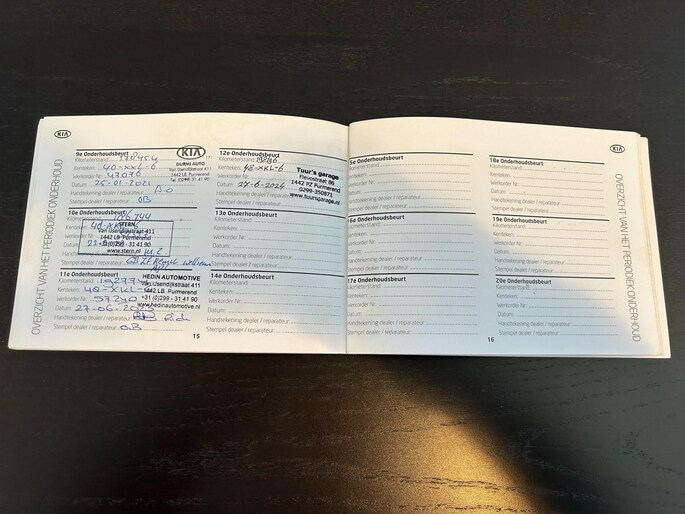 KIA
OVERZICHT VAN HET PERIODIEK ONDERHOUD
9e Onderhoudsbeurt
Kilometerstand: 178454
Kenteken: 48-XXL-6
Werkorder Nr.: 47076
Datum: 25-01-2021
Handtekening dealer / reparateur:
Stempel dealer / reparateur: OB
KIA
DURMI AUTO
Van IJsendijkstraat 411
1442 LB Purmerend
10e Onderhoudsbeurt
STERN
Van IJsendijkstraat 411
1442 LB Purmerend
31 41 90
www.stern.nl
11e Onderhoudsbeurt
Kilometerstand:
Kenteken:
Werkorder Nr.: 97240
Datum: 27-06-
Handtekening dealer / reparateur:
Stempel dealer / reparateur: OB
HEDIN AUTOMOTIVE
Van IJsendijkstraat 411
1442 LB Purmerend
+31 (0)299 - 31 41 90
www.hedinautomotive.nl
12e Onderhoudsbeurt
Kilometerstand:
Kenteken: 48-XKL-6
Werkorder Nr.:
Datum: 27-6-2024
Handtekening dealer / reparateur
Stempel dealer / reparateur:
Tuur's garage
Flevostraat 86
1442 PZ Purmerend
0299-350871
www.tuursgarage.nl
13e Onderhoudsbeurt
Kilometerstand:
Kenteken:
Werkorder Nr.:
Datum:
Handtekening dealer / reparateur:
Stempel dealer / reparateur:
14e Onderhoudsbeurt
Kilometerstand:
Kenteken:
Werkorder Nr.:
Datum:
Handtekening dealer / reparateur:
Stempel dealer / reparateur:
15
15e Onderhoudsbeurt
Kilometerstand:
Kenteken:
Werkorder Nr.:
Datum:
Handtekening dealer / reparateur:
Stempel dealer / reparateur:
16e Onderhoudsbeurt
Kilometerstand:
Kenteken:
Werkorder Nr.:
Datum:
Handtekening dealer / reparateur:
Stempel dealer / reparateur:
17e Onderhoudsbeurt
Kilometerstand:
Kenteken:
Werkorder Nr.:
Datum:
Handtekening dealer / reparateur:
Stempel dealer / reparateur:
KIA
18e Onderhoudsbeurt
Kilometerstand:
Kenteken:
Werkorder Nr.:
Datum:
Handtekening dealer / reparateur:
Stempel dealer / reparateur:
19e Onderhoudsbeurt
Kilometerstand:
Kenteken:
Werkorder Nr.:
Datum:
Handtekening dealer / reparateur:
Stempel dealer / reparateur:
20e Onderhoudsbeurt
Kilometerstand:
Kenteken:
Werkorder Nr.:
Datum:
Handtekening dealer / reparateur:
Stempel dealer / reparateur:
16
OVERZICHT VAN HET PERIODIEK ONDERHOUD